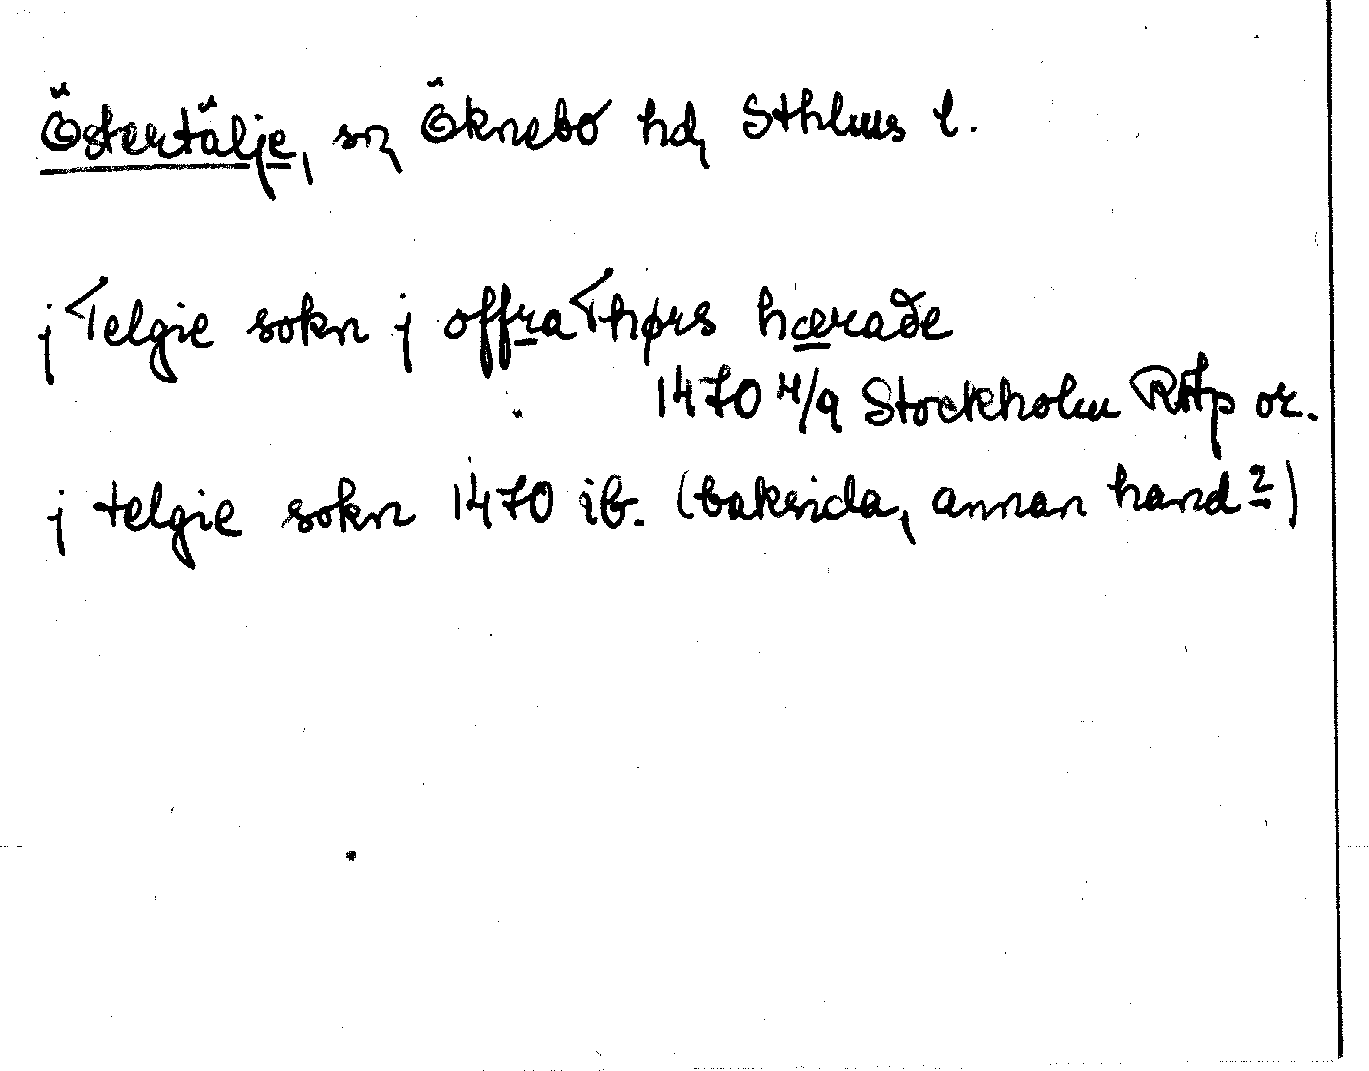 Östertälje, sn, Öknebo hd, Sthlms l.
j Telgie sokn j offra Thørs hæraðe
1470 4/9 Stockholm RAp or.
j telgie sokn 1470 ib. (baksida, annan hand?)